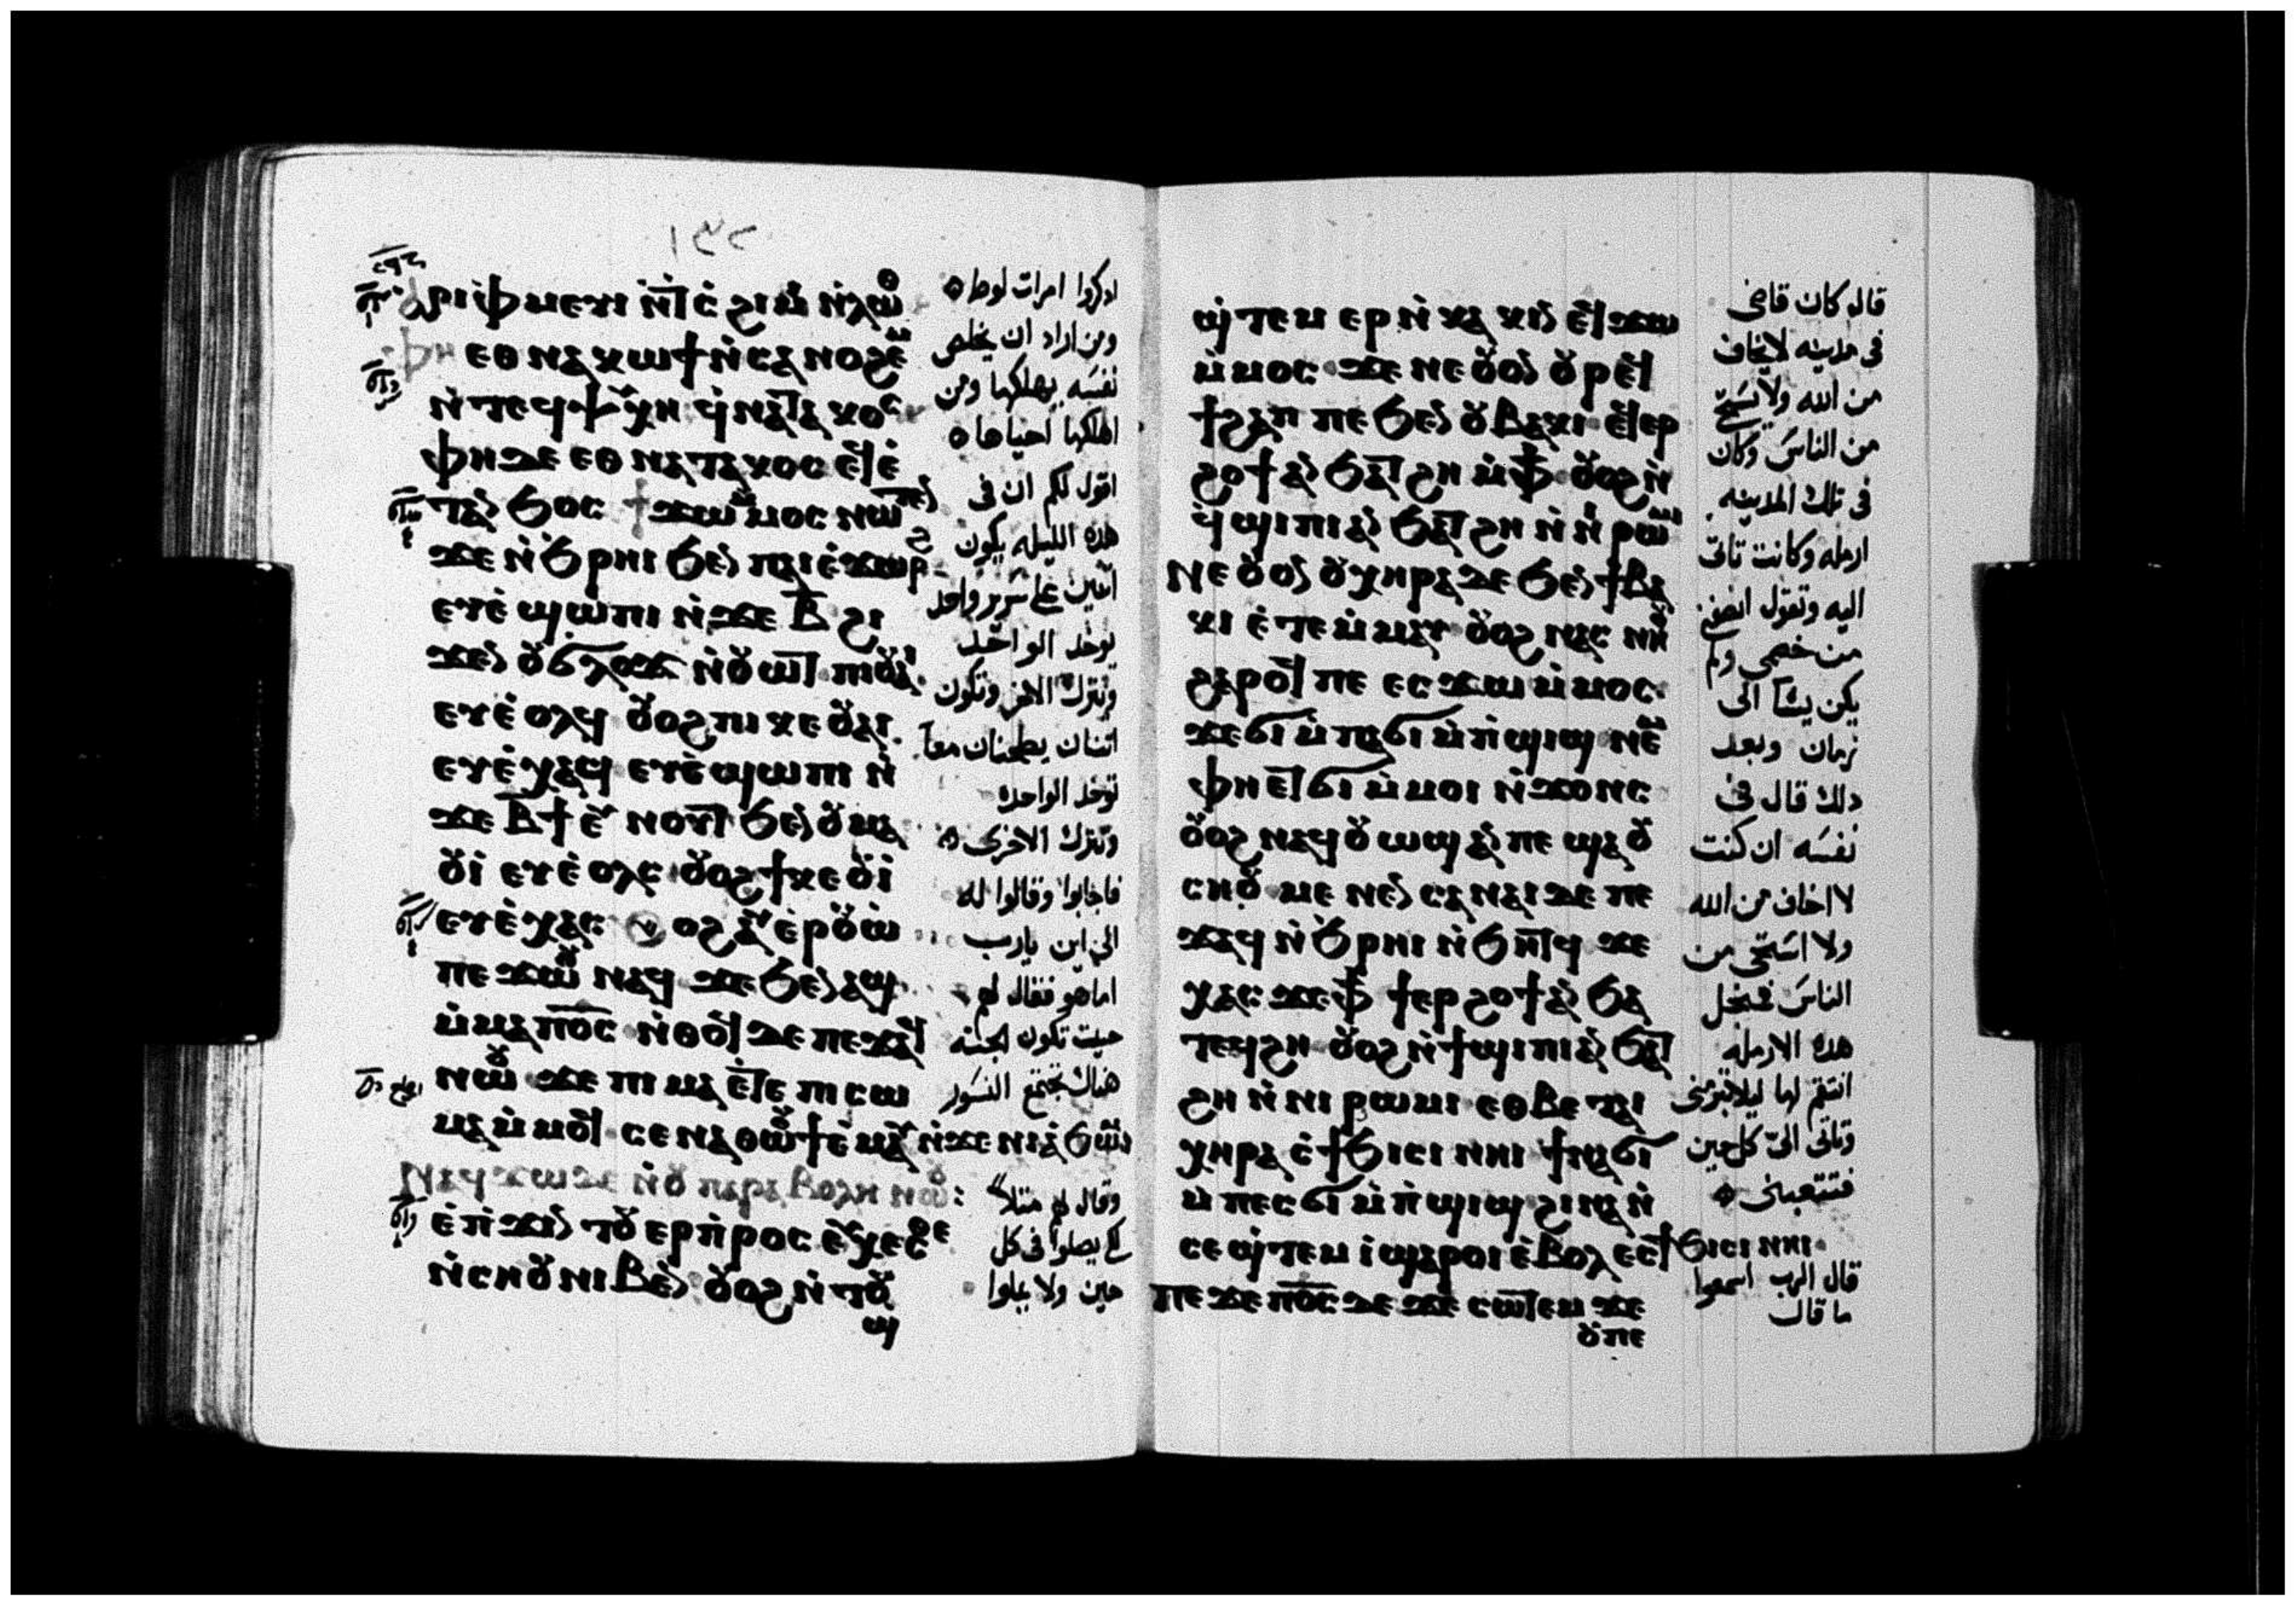 ١٣٢
ⲁⲣⲓⲫⲙⲉⲩⲓ ⲛ̀ⲧⲥ̀ϩⲓⲙⲓ ⲛ̀ⲗⲱⲧ
ⲫⲏ ⲉⲑⲛⲁⲕⲱϯ ⲛ̀ⲥⲁ ⲛⲟϩⲉⲙ
ⲛ̀ⲧⲉϥⲯⲩⲭⲏ ϥ̀ⲛⲁⲧⲁⲕⲟⲥ
ⲫⲏ ⲇⲉ ⲉⲑⲛⲁⲧⲁⲕⲟⲥ ⲉϥⲉ̀
ⲧⲁⲛϧⲟⲥ ϯϫⲱ ⲙ̀ⲙⲟⲥ ⲛⲱⲧⲉⲛ
ϫⲉ ⲛ̀ϧⲣⲏⲓ ϧⲉⲛ ⲡⲁⲓⲉ̀ϫⲱⲣϩ
ⲉⲩⲉ̀ϣⲱⲡⲓ ⲛ̀ϫⲉ ⲃ̅ ϩⲓ
ϫⲉⲛ ⲟⲩϭⲗⲟϫ ⲛ̀ⲟⲩⲱⲧ ⲡⲓⲟⲩⲁⲓ
ⲉⲩⲉ̀ⲟⲗϥ ⲟⲩⲟϩ ⲡⲓⲕⲉⲟⲩⲁⲓ
ⲉⲩⲉ̀ⲭⲁϥ ⲉⲩⲉ̀ϣⲱⲡⲓ ⲛ̀
ϫⲉ ⲃ̅ϯ ⲉⲩⲛⲟⲩⲧ ϧⲉⲛ ⲟⲩⲙⲁ
ⲟⲩⲓ̀ ⲉⲩⲉ̀ⲟⲗⲥ ⲟⲩⲟϩ ϯⲕⲉⲟⲩⲓ̀
ⲉⲩⲉ̀ⲭⲁⲥ ⲟⲩⲟϩ ⲁⲩⲉ̀ⲣⲟⲩⲱ̀
ⲡⲉϫⲱⲟⲩ ⲛⲁϥ ϫⲉ ϧⲉⲛ ⲁϣ
ⲙ̀ⲙⲁ ⲡⲟ̅ⲥ̅ ⲛ̀ⲑⲟϥ ⲇⲉ ⲡⲉϫⲁϥ
ⲛⲱⲟⲩ ϫⲉ ⲡⲓⲙⲁ ⲉ̀ⲧⲉ ⲡⲓⲥⲱ
ⲙⲁ ⲙ̀ⲙⲟϥ ⲥⲉⲛⲁⲑⲱⲟⲩϯ ⲉ̀ⲙⲁⲩ ⲛ̀ϫⲉ ⲛⲓⲁ̀ϧⲱⲙ
ⲛⲁϥϫⲱ ⲇⲉ ⲛ̀ⲟⲩⲡⲁⲣⲁⲃⲟⲗⲏ ⲛⲱⲟⲩ
ⲉ̀ⲡ̀ϫⲓⲛⲧⲟⲩⲉⲣⲡ̀ⲣⲟⲥⲉⲩⲭⲉⲥⲑⲉ
ⲛ̀ⲥⲏⲟⲩ ⲛⲓⲃⲉⲛ ⲟⲩⲟϩ ⲛ̀ⲧⲟⲩ
ϣ
ادكروا امرات لوط
ومن اراد ان يخلص
نفسه يهلكها ومن
اهلكها احياها
اقول لكم ان في
هذه الليله يكون
اثنين على سرير واحد
يوخد الواحد
ويترك الاخر وتكون
اثنتان يطحنان معاً
توخد الواحده
وتترك الاخرى
فاجابوا وقالوا له
الى اين يارب
اما هو فقال لهم
حيث تكون الجثه
هناك تجتمع النسور
وقال لهم مثلاً
لكي يصلوا في كل
حين ولا يملوا
ϣ̀ⲧⲉⲙⲉⲣⲛ̀ⲕⲁⲕⲓⲛ ⲉϥϫⲱ
ⲙ̀ⲙⲟⲥ ϫⲉ ⲛⲉ ⲟⲩⲟⲛ ⲟⲩⲣⲉϥ
ϯϩⲁⲡ ⲡⲉ ϧⲉⲛ ⲟⲩⲃⲁⲕⲓ ⲉϥⲉⲣ
ϩⲟϯ ⲁⲛ ϧⲁⲧϩⲏ ⲙ̀ⲫϯ ⲟⲩⲟϩ ⲛ̀
ϥ̀ϣⲓⲡⲓ ⲁⲛ ϧⲁⲧϩⲏ ⲛ̀ⲛⲓⲣⲱⲙⲓ
ⲛⲉ ⲟⲩⲟⲛ ⲟⲩⲭⲏⲣⲁ ⲇⲉ ϧⲉⲛ ϯⲃⲁ
ⲕⲓ ⲉ̀ⲧⲉⲙ̀ⲙⲁⲩ ⲟⲩⲟϩ ⲛⲁⲥⲛⲏⲟⲩ
ϩⲁⲣⲟϥ ⲡⲉ ⲉⲥϫⲱ ⲙ̀ⲙⲟⲥ
ϫⲉ ϭⲓ ⲙ̀ⲡⲁϭⲓⲙ̀ⲡ̀ϣⲓϣ ⲛⲉⲙ
ⲫⲏ ⲉⲧϭⲓ ⲙ̀ⲙⲟⲓ ⲛ̀ϫⲟⲛⲥ
ⲟⲩⲟϩ ⲛⲁϥⲟⲩⲱϣ ⲁⲛ ⲡⲉ ϣⲁ ⲟⲩ
ⲥⲏⲟⲩ ⲙⲉⲛⲉⲛⲥⲁ ⲛⲁⲓ ⲇⲉ ⲡⲉ
ϫⲁϥ ⲛ̀ϧⲣⲏⲓ ⲛ̀ϧⲏⲧϥ ϫⲉ
ⲭⲁⲥ ϫⲉ ⲫϯ ϯⲉⲣϩⲟϯ ⲁⲛ ϧⲁ
ⲧⲉϥϩⲏ ⲟⲩⲟϩ ⲛ̀ϯϣⲓⲡⲓ ⲁⲛ ϧⲁⲧ
ϩⲏ ⲛ̀ⲛⲓⲣⲱⲙⲓ ⲉⲑⲃⲉ ⲧⲁⲓ
ⲭⲏⲣⲁ ⲉ̀ϯϧⲓⲥⲓ ⲛⲏⲓ ϯⲛⲁϭⲓ
ⲙ̀ⲡⲉⲥϭⲓⲙ̀ⲡ̀ϣⲓϣ ϩⲓⲛⲁ ⲛ̀
ⲥⲉϣ̀ⲧⲉⲙⲓ̀ ϣⲁⲣⲟⲓ ⲉ̀ⲃⲟⲗ ⲉⲥϯϧⲓⲥⲓ ⲛⲏⲓ
ⲡⲉϫⲉ ⲡⲟ̅ⲥ̅ ⲇⲉ ϫⲉ ⲥⲱⲧⲉⲙ ϫⲉ
ⲟⲩⲡⲉ
قال كان قاضي
في مدينه لايخاف
من الله ولا يستحي
من الناس وكان
في تلك المدينه
ارمله وكانت تاتي
اليه وتقول انصفني
من خصمي ولم
يكن يشا الى
زمان وبعد
دلك قال في
نفسه ان كنت
لا اخاف من الله
ولا استحي من
الناس
هذه الارمله
انتقم لها ليلا
وتاتي الي كل حين
فتتعبني
قال الرب اسمعوا
ما قال